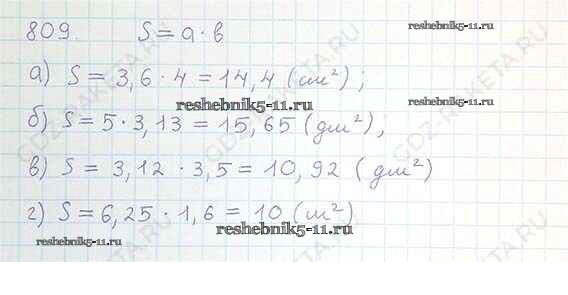 809. S = a · в
reshebnik5-11.ru
а) S = 3,6 · 4 = 14,4 (см²);
reshebnik5-11.ru
reshebnik5-11.ru
б) S = 5 · 3,13 = 15,65 (дм²);
в) S = 3,12 · 3,5 = 10,92 (дм²)
г) S = 6,25 · 1,6 = 10 (м²)
reshebnik5-11.ru
reshebnik5-11.ru
GDZ-RAKETA.RU
GDZ-RAKETA.RU
GDZ-RAKETA.RU